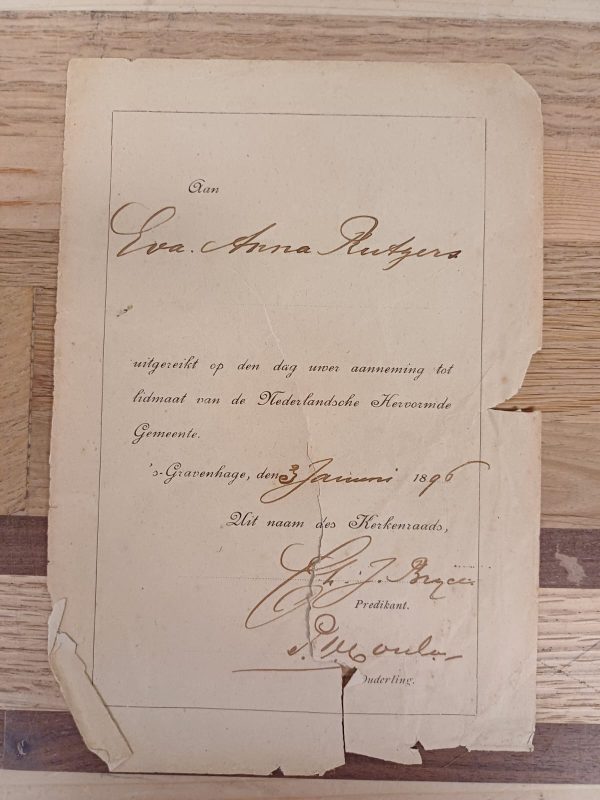 Aan
Eva. Anna Rutgers
uitgereikt op den dag uwer aanneming tot
lidmaat van de Nederlandsche Hervormde
Gemeente.
's-Gravenhage, den 3 Januari 1896
Uit naam des Kerkenraads,
Ch. J.
Predikant.
Ouderling.